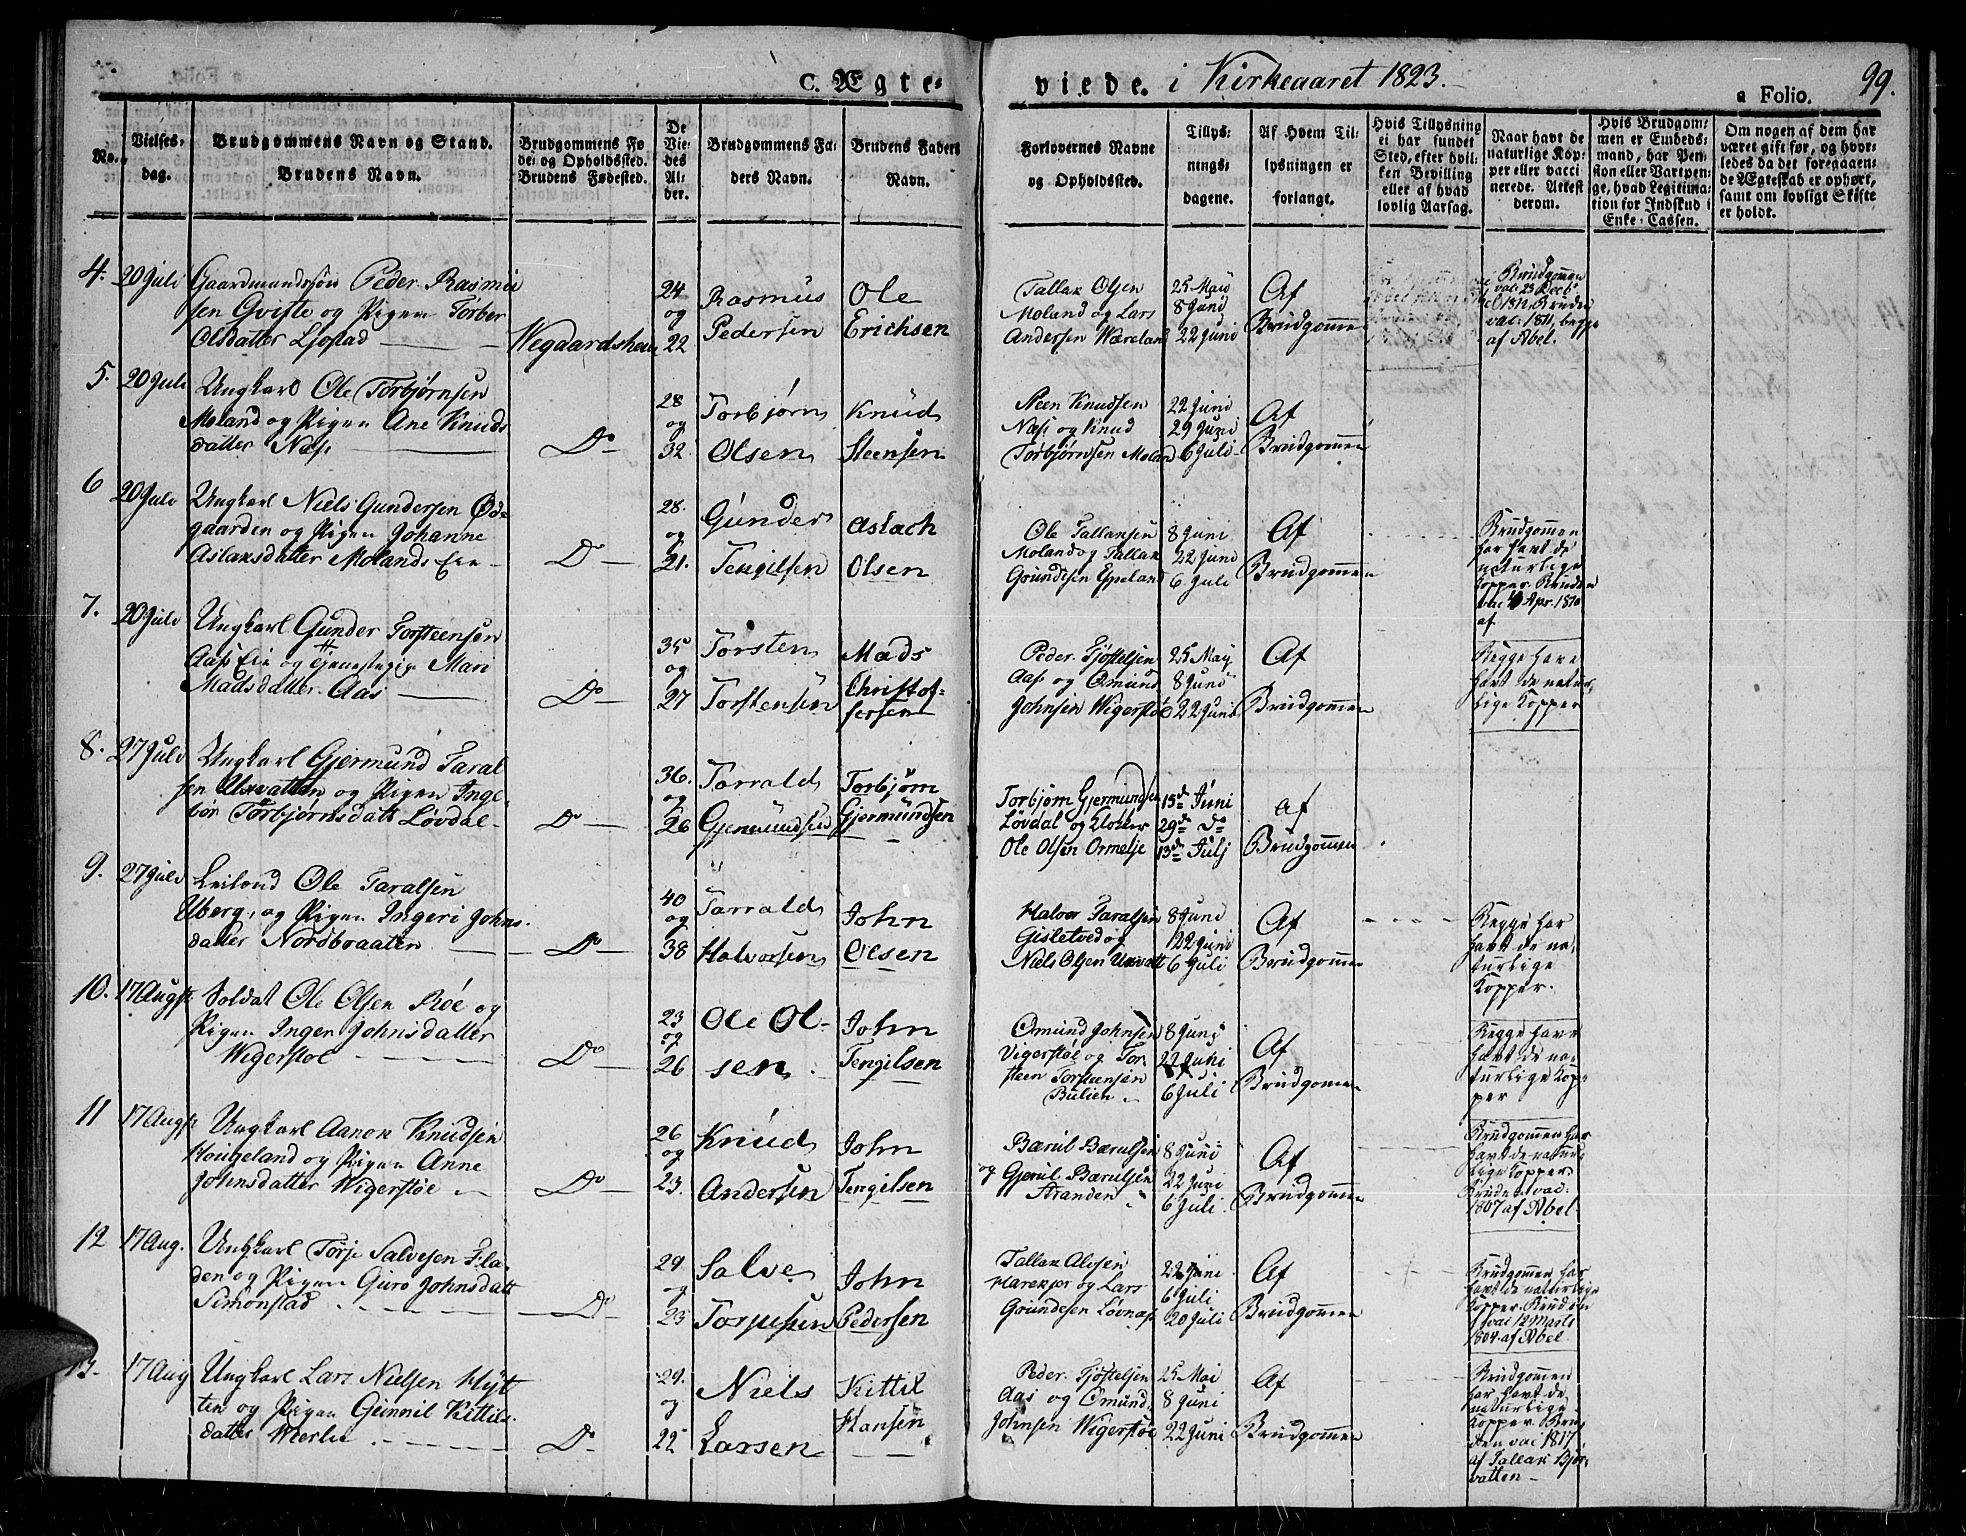 c. Ægte-
viede. i Kirkeaaret 1823.
a Folio. 99.
No. Vielses-dag.
Brudgommens Navn og Stand. Brudens Navn.
Brudgommens Fø-de- og Opholdssted. Brudens Fødested.
De Vie-des Al-der.
Brudgommens Fa-ders Navn.
Brudens Faders Navn.
Forlovernes Navne og Opholdssted.
Tillys-nings-dagene.
Af Hvem Til-lysningen er forlangt.
Hvis Tillysning ei har fundet Sted, efter hvil-ken Bevilling eller af hvad lovlig Aarsag.
Naar havt de naturlige Kop-per eller vacci-nerede. Attest derom.
Hvis Brudgom-men er Embeds-mand, har Pen-sion eller Vartpen-ge, hvad Legitima-tion for Indskud i Enke-Cassen.
Om nogen af dem har været gift før, og hvor-ledes da det foregaaen-de Ægteskab er ophørt, samt om lovligt Skifte er holdt.
4. 20 Juli Gaardmandssøn Peder Rasmu
sen Gviste og Pigen Torber
Olsdatter Ljostad
Wegaardsheien
24 og 22
Rasmus
Pedersen
Ole
Erichsen
Tallak Olsen
Moland og Lars
Andersen Wæreland
25 Mai
8 Juni
22 Juni
Af
Brudgommen
Brudgommen
vac: 23 Decb
1812 Bruden
vac: 1811, begge
af Abel.
5. 20 Juli Ungkarl Ole Torbjørnsen
Moland og Pigen Ane Knuds
datter Næs
Do
28 og 32
Torbjørn
Olsen
Knud
Steensen
Steen Knudsen
Næs og Knud
Torbjørnsen Moland
22 Juni
29 Juni
6 Juli
Af
Brudgommen
6 20 Juli Ungkarl Niels Gundersen Øde
gaarden og Pigen Johanne
Aslaksdatter Molands Eie
Do
28. og 21.
Gunder
Tengilsen
Aslach
Olsen
Ole Tallaksen
Moland og Tallak
Gundesen Eppeland
8 Juni
22 Juni
6 Juli
Af
Brudgommen
Brudgommen
har havt de
naturlige
Kopper. Bruden
vac Apr. 1810
af
7. 20 Juli Ungkarl Gunder Torsteensen
Aas Eie og Mari
Madsdatter Aas
Do
35 og 27
Torsten
Torstensen
Mads
Christof-
fersen
Peder Tjøstelsen
Aas og Omund
Johnsen Wigerstøe
25 May
8 Juni
22 Juni
Af
Brudgommen
Begge have
havt de natur-
lige Kopper
8. 27 Juli Ungkarl Gjermund Taral
sen Uxvatten og Pigen Inge
bør Torbjørnsdatt Løvdal
Do
36. og 26
Tarrald
Gjermundsen
Torbjørn
Gjermundsen
Torbjørn Gjermundsen
Løvdal og Klokker
Ole Olsen Ormelje
15de Juni
29de do
13de Julj
af
Brudgommen
9. 27 Juli Leilænd Ole Taralsen
Uberg, og Pigen Ingeri Johns
datter Nordbraaten
Do
40 og 38
Tarrald
Halvorsen
John
Olsen
Halvor Taralsen
Gisletved og
Niels Olsen Uxvatt
8 Juni
22 Juni
6 Juli
Af
Brudgommen
Begge har
havt de na-
turlige
Kopper.
10. 17 Augst Soldat Ole Olsen Røe og
Pigen Inger Johnsdatter
Wigerstøe
Do
23 og 26
Ole Ol-
sen
John
Tengilsen
Omund Johnsen
Vigerstøe og Tor
steen Torsteensen
Bulien
8 Juni
22 Juni
6 Juli
Af
Brudgommen
Begge have
havt de na-
turlige Kop-
per
11 17 Augst Ungkarl Aanon Knudsen
Hougeland og Pigen Anne
Johnsdatter Wigerstøe
Do
26 og 23.
Knud
Andersen
John
Tengilsen
Bærul Bærulsen
og Gjerul Bærulsen
Stranden
8 Juni
22 Juni
6 Juli
Af
Brudgommen
Brudgommen har
havt de natur
lige Kopper
Bruden vac.
1807 af Abel.
12 17 Aug. Ungkarl Torje Salvesen Fla-
den og Pigen Guro Johnsdatt
Simonstad
Do
29 og 23
Salve
Torjusen
John
Pedersen
Tallak Alvsen
Harekjær og Lars
Gundesen Løvnæs
22 Juni
6 Juli
20 Juli
Af
Brudgommen
Brudgommen har
havt de naturlige
Kopper. Bruden
vac 12 Marts
1804 af Abel
13. 17 Aug Ungkarl Lars Nielsen Hyt
ten og Pigen Gunnil Kittils
datter Wierlie
Do
29. og 22
Niels
Larsen
Kittil
Hansen
Peder Tjøstelsen
Aas og Omund
Johnsen Wigerstøe
25 Mai
8 Juni
22 Juni
Af
Brudgommen
Brudgommen
har havt de
naturlige
Kopper. Bru
den vac 1817
af Tallak Bjor-
vatten